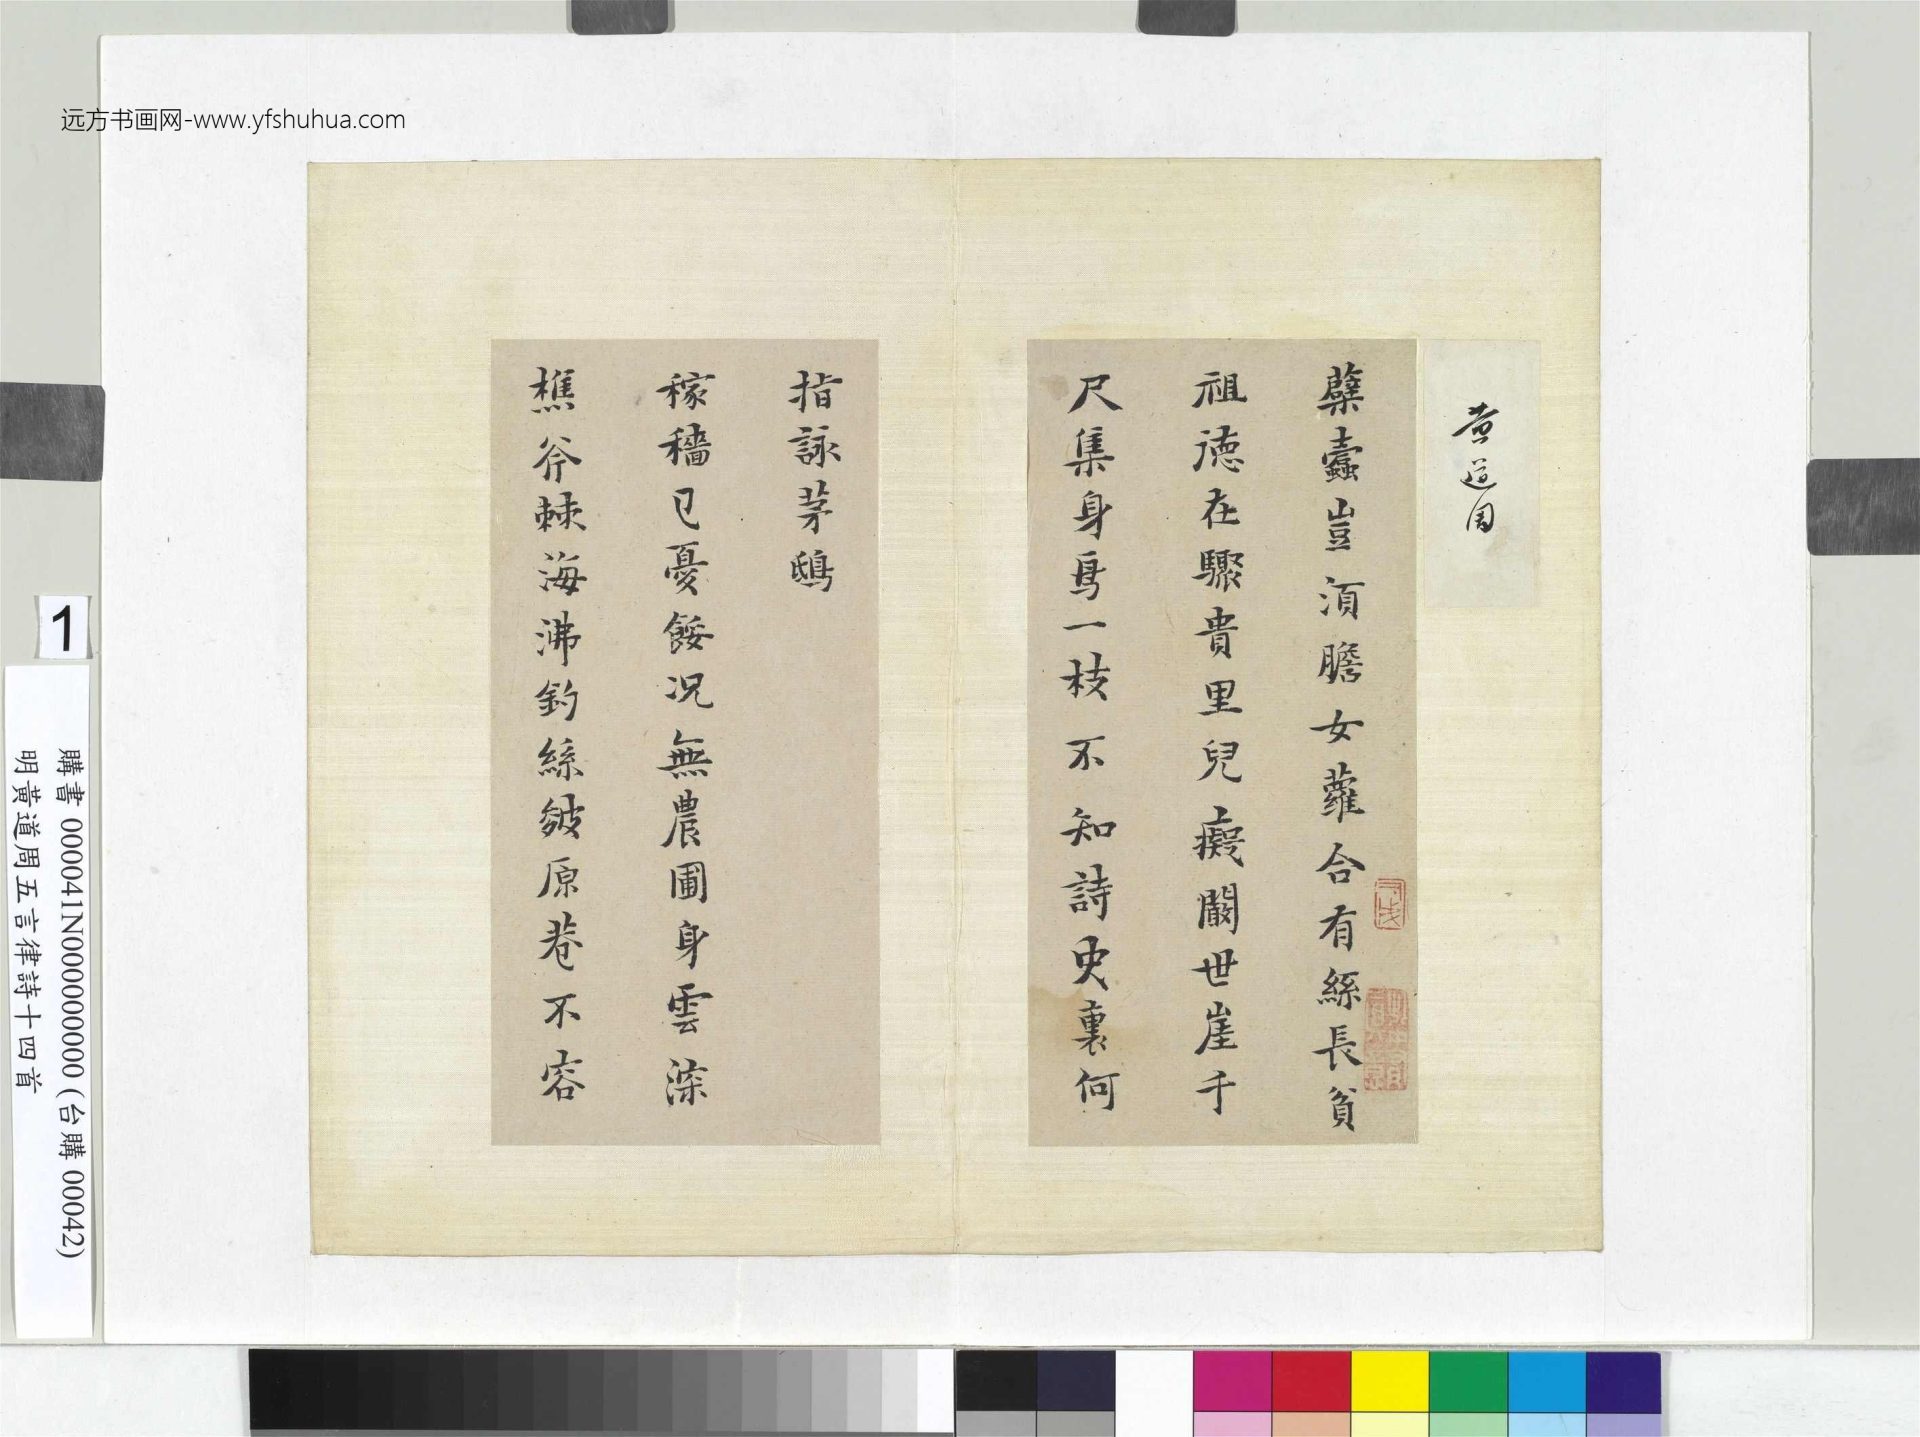 远方书画网-www.yfshuhua.com
黄道周
蘖蠹豈須膽女蘿合有絲長貧
祖德在驟貴里兒癡闞世崖千
尺集身鳥一枝不知詩史裏何
指詠茅鴟
稼穡已憂餒况無農圃身雲深
樵斧棘海沸釣絲皴原巷不容
1
購書 000041N000000000 (台購 00042)
明黃道周五言律詩十四首